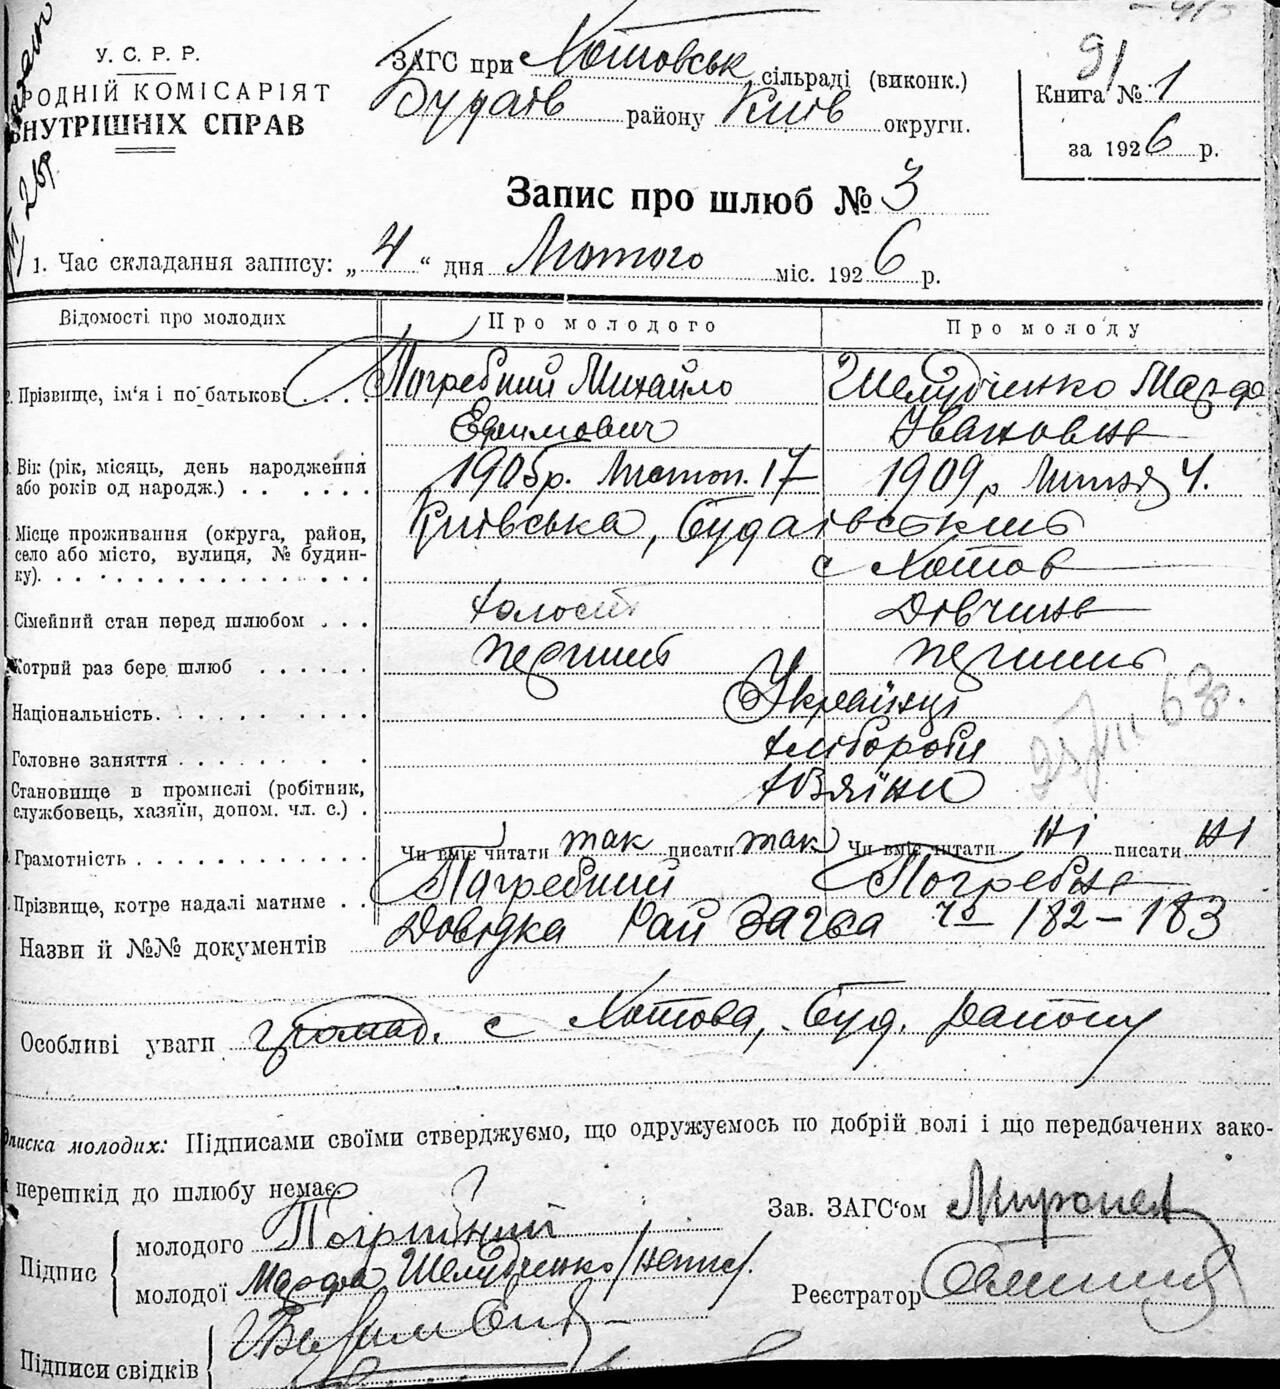 У.С.Р.Р.
РОДНІЙ КОМІСАРІЯТ
ВНУТРІШНІХ СПРАВ
ЗАГС при Хотовськ сільраді (виконк.)
Будаїв району Київ округи.
Книга № 1
за 1926 р.
Запис про шлюб № 3
1. Час складання запису: „4“ дня Лютого міс. 1926 р.
Відомості про молодих Про молодого Про молоду
Прізвище, ім'я і по батькові Погребний Михайло Шелудченко Марфа
Ефимович Ивановна
Вік (рік, місяць, день народження
або років од народж.) 1905р. Листоп. 17 1909р Липня 4.
Місце проживання (округа, район, Київська, Будаївський
село або місто, вулиця, № будин- с Хотов
ку)
Сімейний стан перед шлюбом холостий Дівчина
Котрий раз бере шлюб перший перший
Національність Українці
Головне заняття хлібороби
Становище в промислі (робітник, хазяїни
службовець, хазяїн, допом. чл. с.)
Грамотність Чи вміє читати так писати так Чи вміє читати ні писати ні
Прізвище, котре надалі матиме Погребний Погребна
Назви й №№ документів Довідка Рай Загса № 182-183
Особливі уваги громад. с Хотова, Буд. району
писка молодих: Підписами своїми стверджуємо, що одружуємось по добрій волі і що передбачених зако-
перешкід до шлюбу немає
Зав. ЗАГС'ом
Підпис
молодого Погрибний
молодої Марфа Шелудченко /непис/.
Реєстратор
Підписи свідків